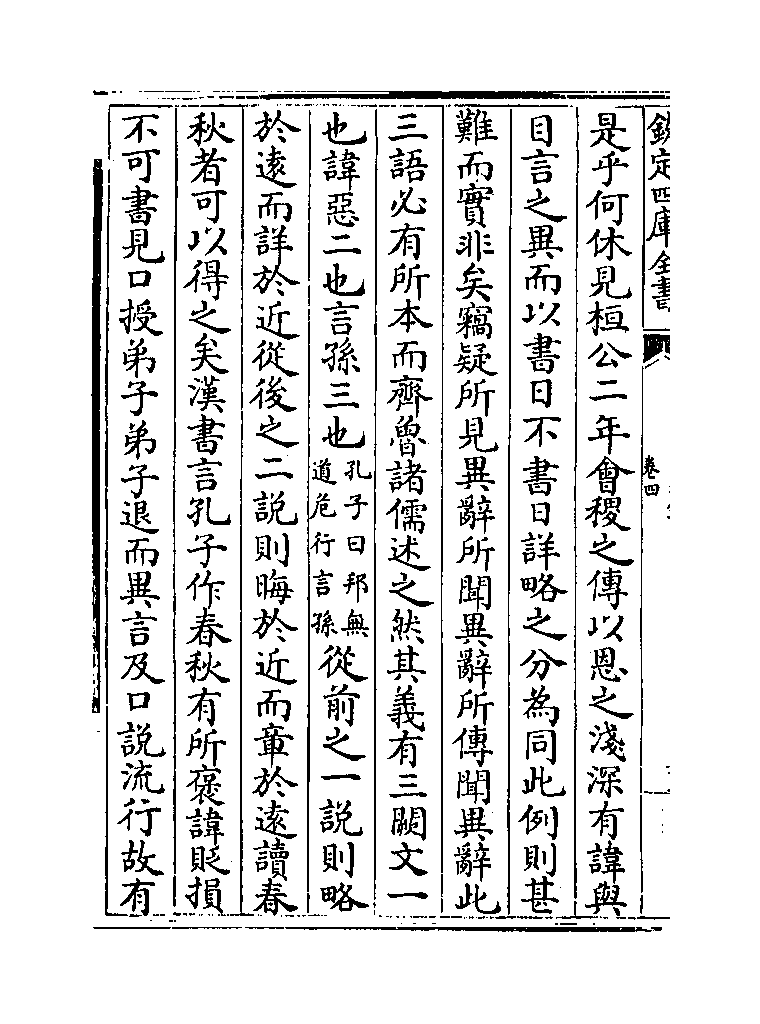 欽定四庫全書
卷四
是乎何休見桓公二年會稷之傳以恩之淺深有諱與
目言之異而以書日不書日詳略之分為同此例則甚
難而實非矣竊疑所見異辭所聞異辭所傳聞異辭此
三語必有所本而齊魯諸儒述之然其義有三闕文一
也諱惡二也言孫三也孔子曰邦無道危行言孫從前之一說則略
於逺而詳於近從後之二說則晦於近而章於逺讀春
秋者可以得之矣漢書言孔子作春秋有所褒諱貶損
不可書見口授弟子弟子退而異言及口說流行故有